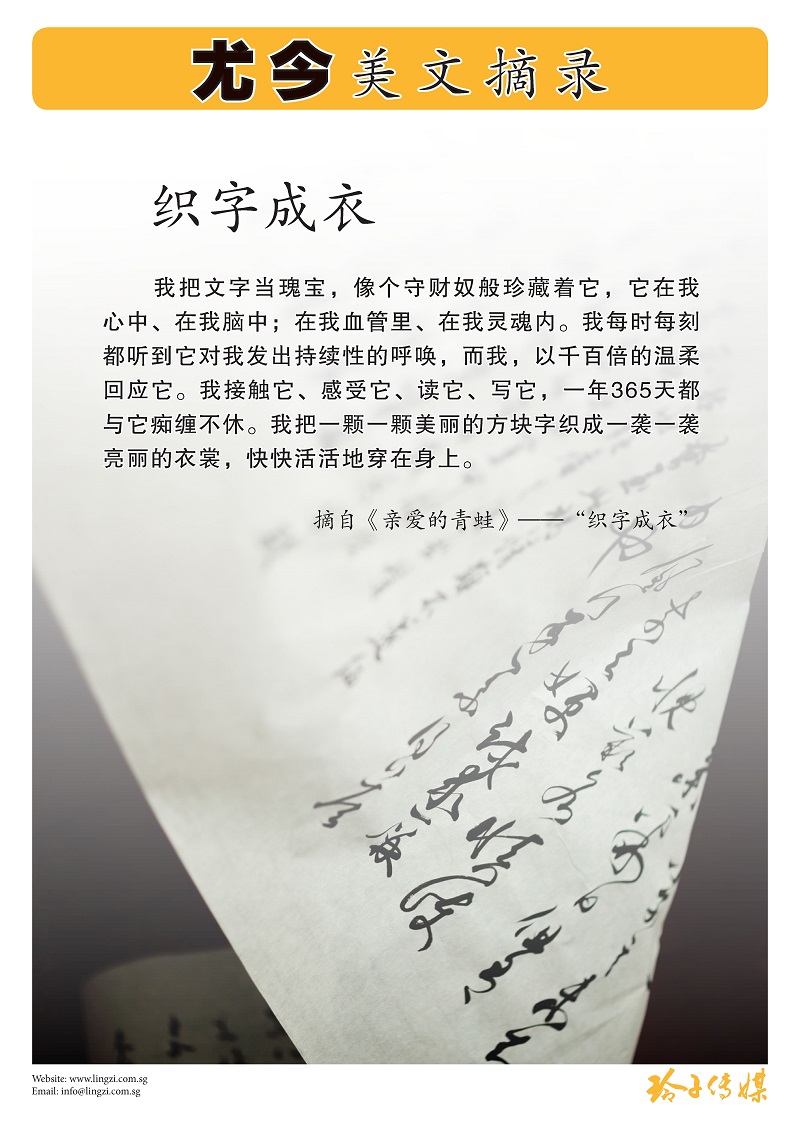 尤今美文摘录
织字成衣
我把文字当瑰宝，像个守财奴般珍藏着它，它在我
心中、在我脑中；在我血管里、在我灵魂内。我每时每刻
都听到它对我发出持续性的呼唤，而我，以千百倍的温柔
回应它。我接触它、感受它、读它、写它，一年365天都
与它痴缠不休。我把一颗一颗美丽的方块字织成一袭一袭
亮丽的衣裳，快快活活地穿在身上。
摘自《亲爱的青蛙》——“织字成衣”
Website: www.lingzi.com.sg
Email: info@lingzi.com.sg
玲子传媒